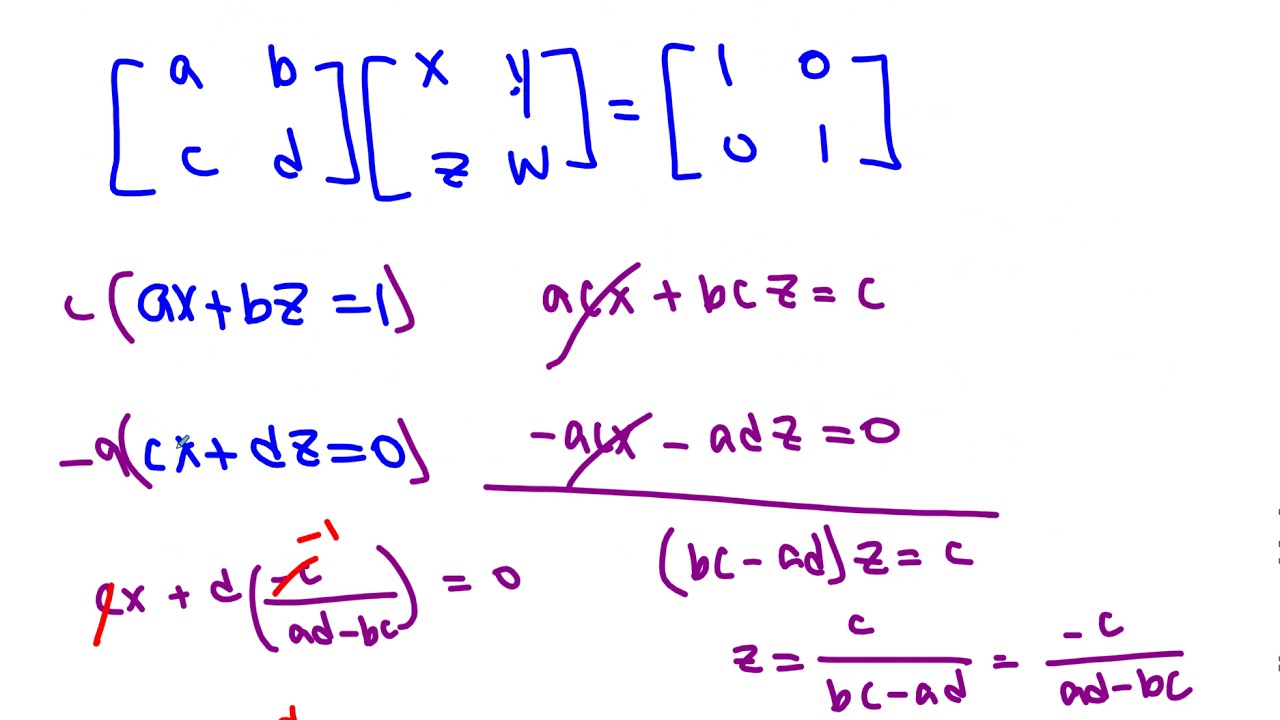 [a b] [x y] = [1 0]
[c d] [z w] = [0 1]
c(ax+bz=1) acx + bcz = c
-a(cx+dz=0) -acx - adz = 0
(bc-ad)z = c
-1
cx + d(-c/(ad-bc)) = 0
z = c/(bc-ad) = -c/(ad-bc)